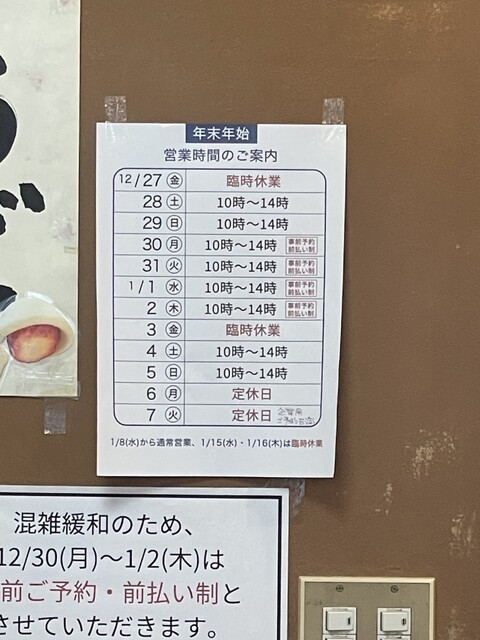 年末年始
営業時間のご案内
12/27㊎ 臨時休業
28㊏ 10時〜14時
29㊐ 10時〜14時
30㊊ 10時〜14時 事前予約 前払い制
31㊋ 10時〜14時 事前予約 前払い制
1/1㊌ 10時〜14時 事前予約 前払い制
2㊍ 10時〜14時 事前予約 前払い制
3㊎ 臨時休業
4㊏ 10時〜14時
5㊐ 10時〜14時
6㊊ 定休日
7㊋ 定休日
1/8(水)から通常営業、1/15(水)・1/16(木)は臨時休業
混雑緩和のため、
12/30(月)〜1/2(木)は
前ご予約・前払い制と
させていただきます。